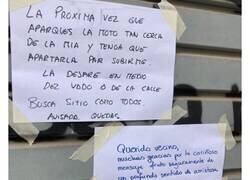 LA PRÓXIMA VEZ QUE
APARQUES LA MOTO TAN CERCA
DE LA MIA Y TENGA QUE
APARTARLA PARA SUBIRME
LA DEJARE EN MEDIO
DEL VADO O DE LA CALLE
BUSCA SITIO COMO TODOS.
AVISADO QUEDAS
Querido vecino,
muchas gracias por tu cariñoso
mensaje fruto seguramente de
un profundo sentido de amistad